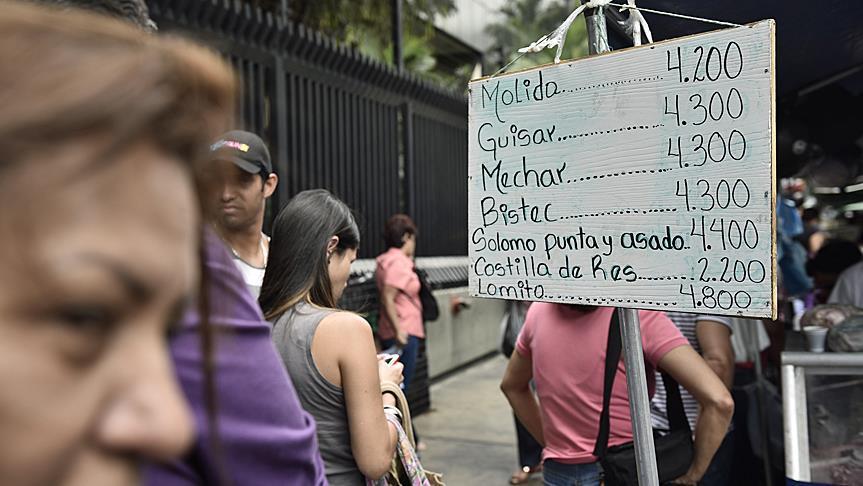 Molida..................4.200
Guisar..................4.300
Mechar..................4.300
Bistec..................4.300
Solomo punta y asado..4.400
Costilla de Res..........2.200
Lomito..................4.800